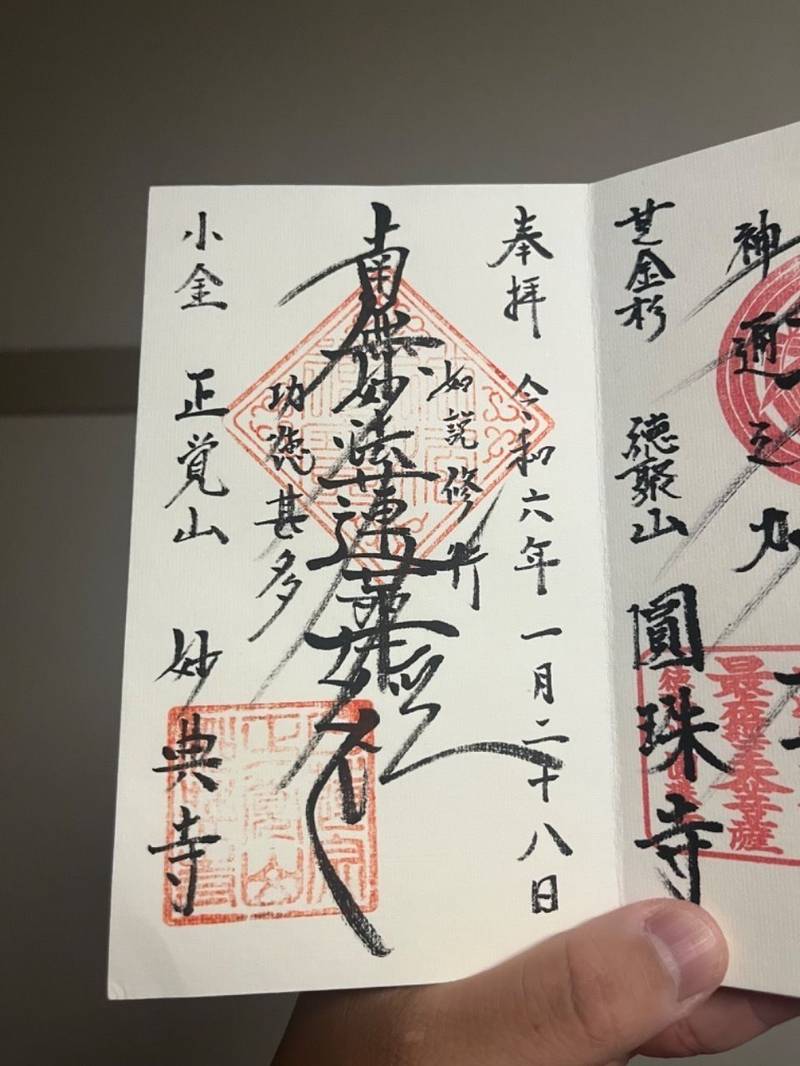 神通之
芝金杉 徳聚山 圓珠寺
奉拝 令和六年一月二十八日
如説修行
南無妙法蓮華経
功徳甚多
小金 正覚山 妙典寺